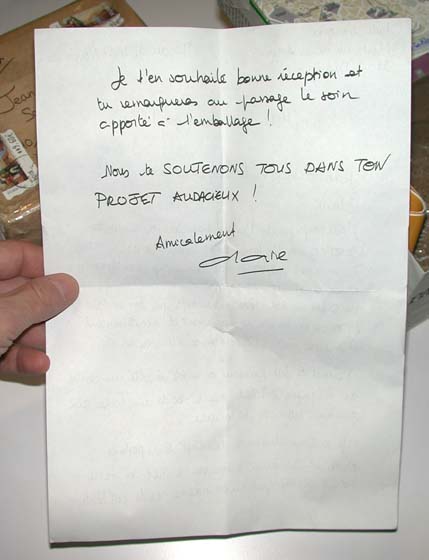 Je t'en souhaite bonne réception et
tu remarqueras au passage le soin
apporté à l'emballage !
Nous te SOUTENONS TOUS DANS TON
PROJET AUDACIEUX !
Amicalement
Claire
Jean